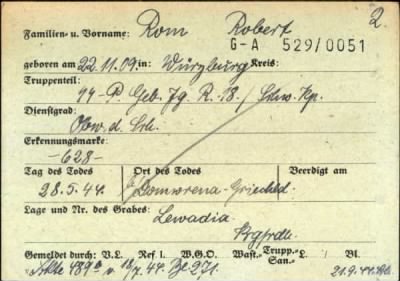 2.
Familien- u. Vorname: Rom Robert
G-A 529/0051
geboren am 22.11.09. in: Würzburg Kreis:
Truppenteil:
14-P. Geb. Jg. R. 18. / Schw. Kp.
Dienstgrad:
Obw. d. Sch.
Erkennungsmarke:
-628-
Tag des Todes Ort des Todes Beerdigt am
28.5.44. Domwrena-Griechld.
Lage und Nr. des Grabes: Lewadia.
Gemeldet durch: V.L. Ref I. W.G.O. Wast.- Trupp.-San.- L. Bl.
489 v. 18/7.44. Bl 271. 21.9.44.